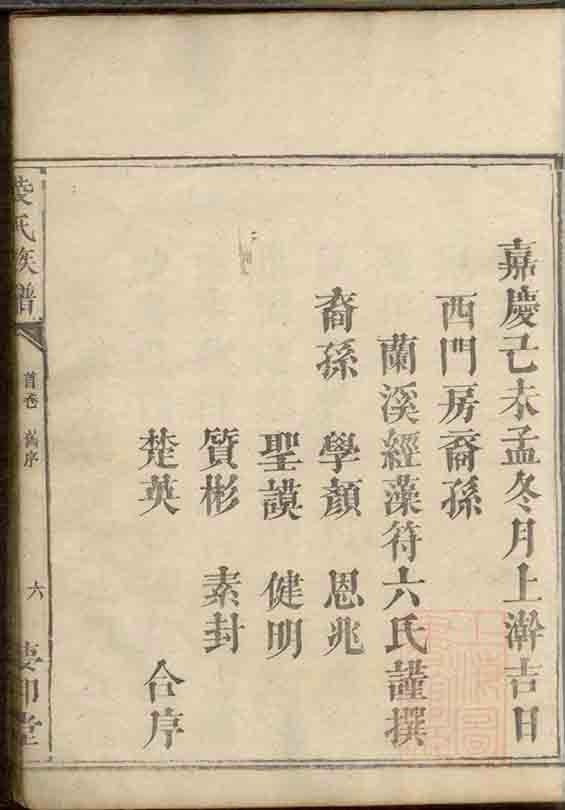 嘉慶己未孟冬月上澣吉日
西門房裔孫
蘭溪經藻符六氏謹撰
裔孫 學顏 恩兆
聖謨 健明
質彬 素封
楚英 合序
氏族譜
首卷 舊序
六
堂